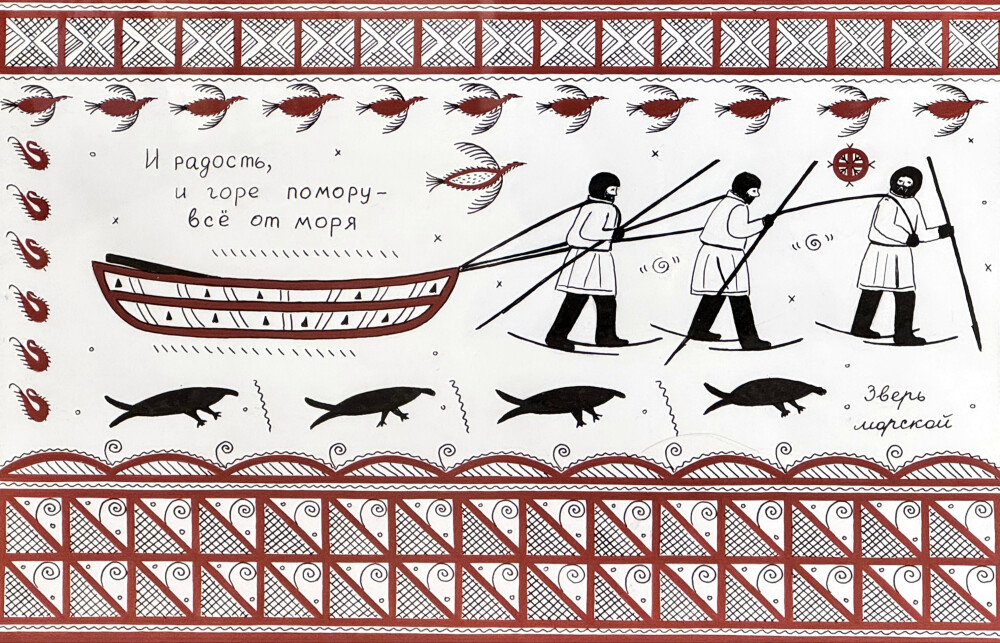 И радость,
и горе помору-
всё от моря
Зверь
морской